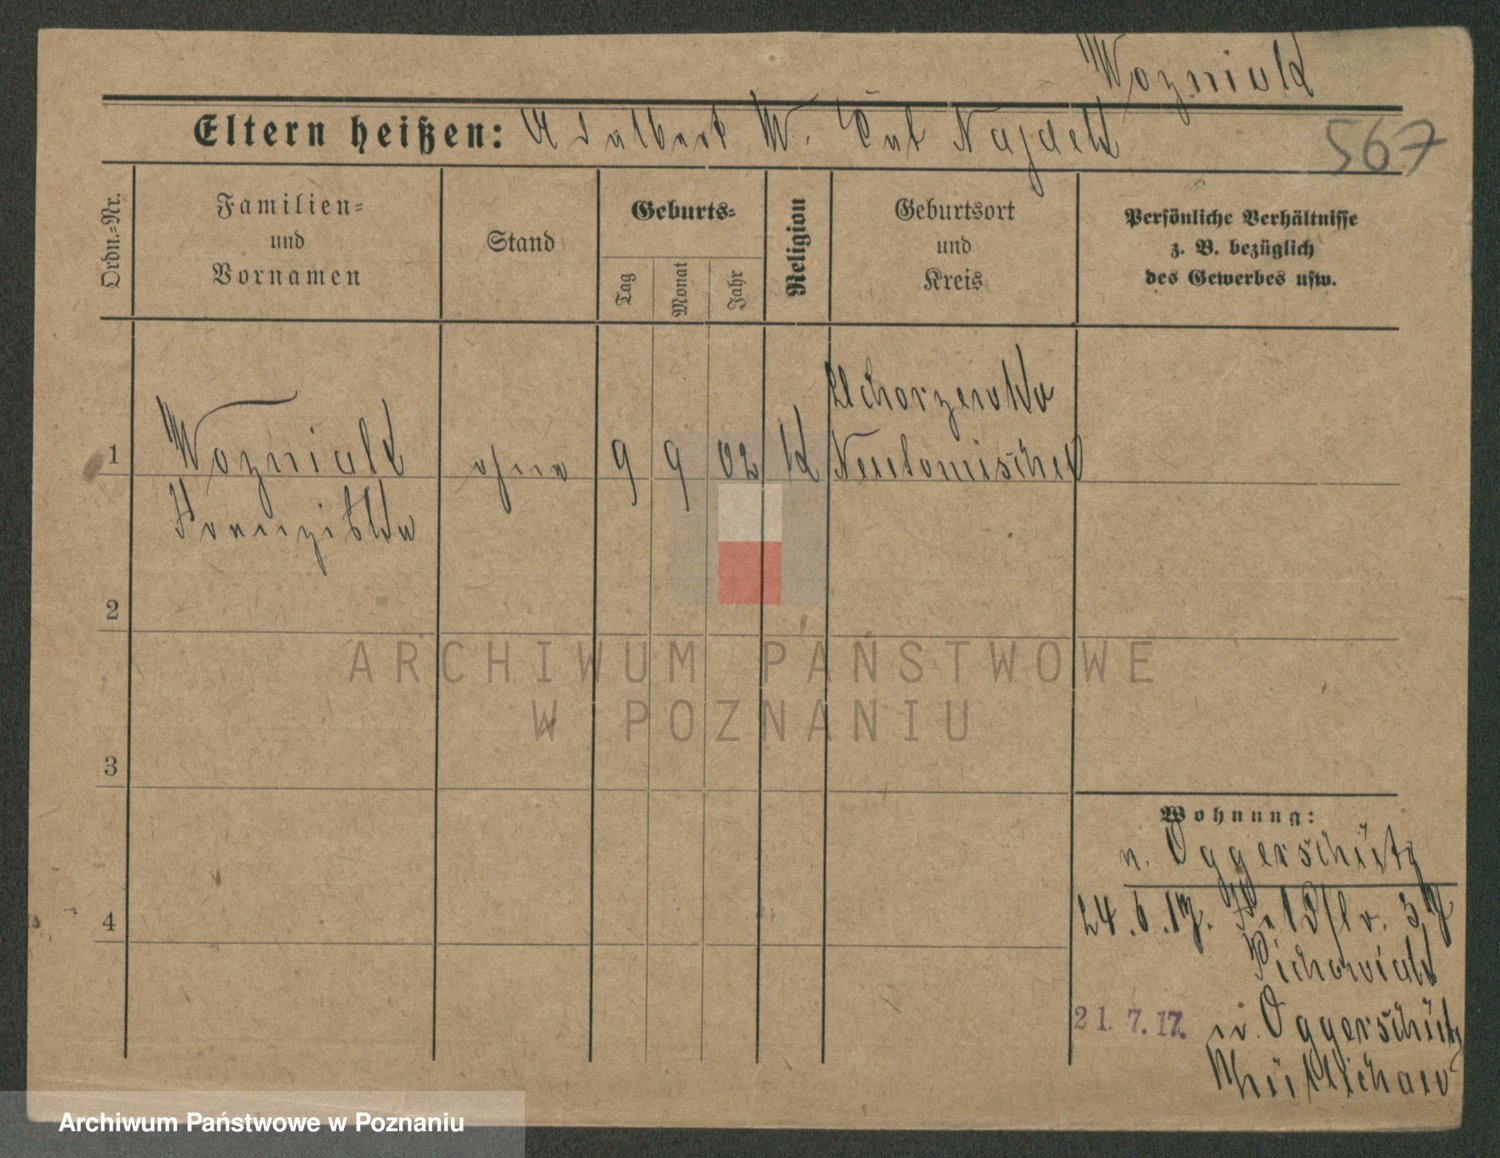 Wozniak
Eltern heißen: Adalbert W. Kat Najdek
567
Ordn.-Nr.
Familien-
und
Vornamen
Stand
Geburts-
Tag
Monat
Jahr
Religion
Geburtsort
und
Kreis
Persönliche Verhältnisse
z. B. bezüglich
des Gewerbes usw.
1
Wozniak
Franziska
ohne
9
9
02
K
Neutomischel
2
3
4
Wohnung:
n. Oggerschütz
24.6.17.
21.7.17. n. Oggerschütz
Züllichau
ARCHIWUM PAŃSTWOWE
W POZNANIU
Archiwum Państwowe w Poznaniu